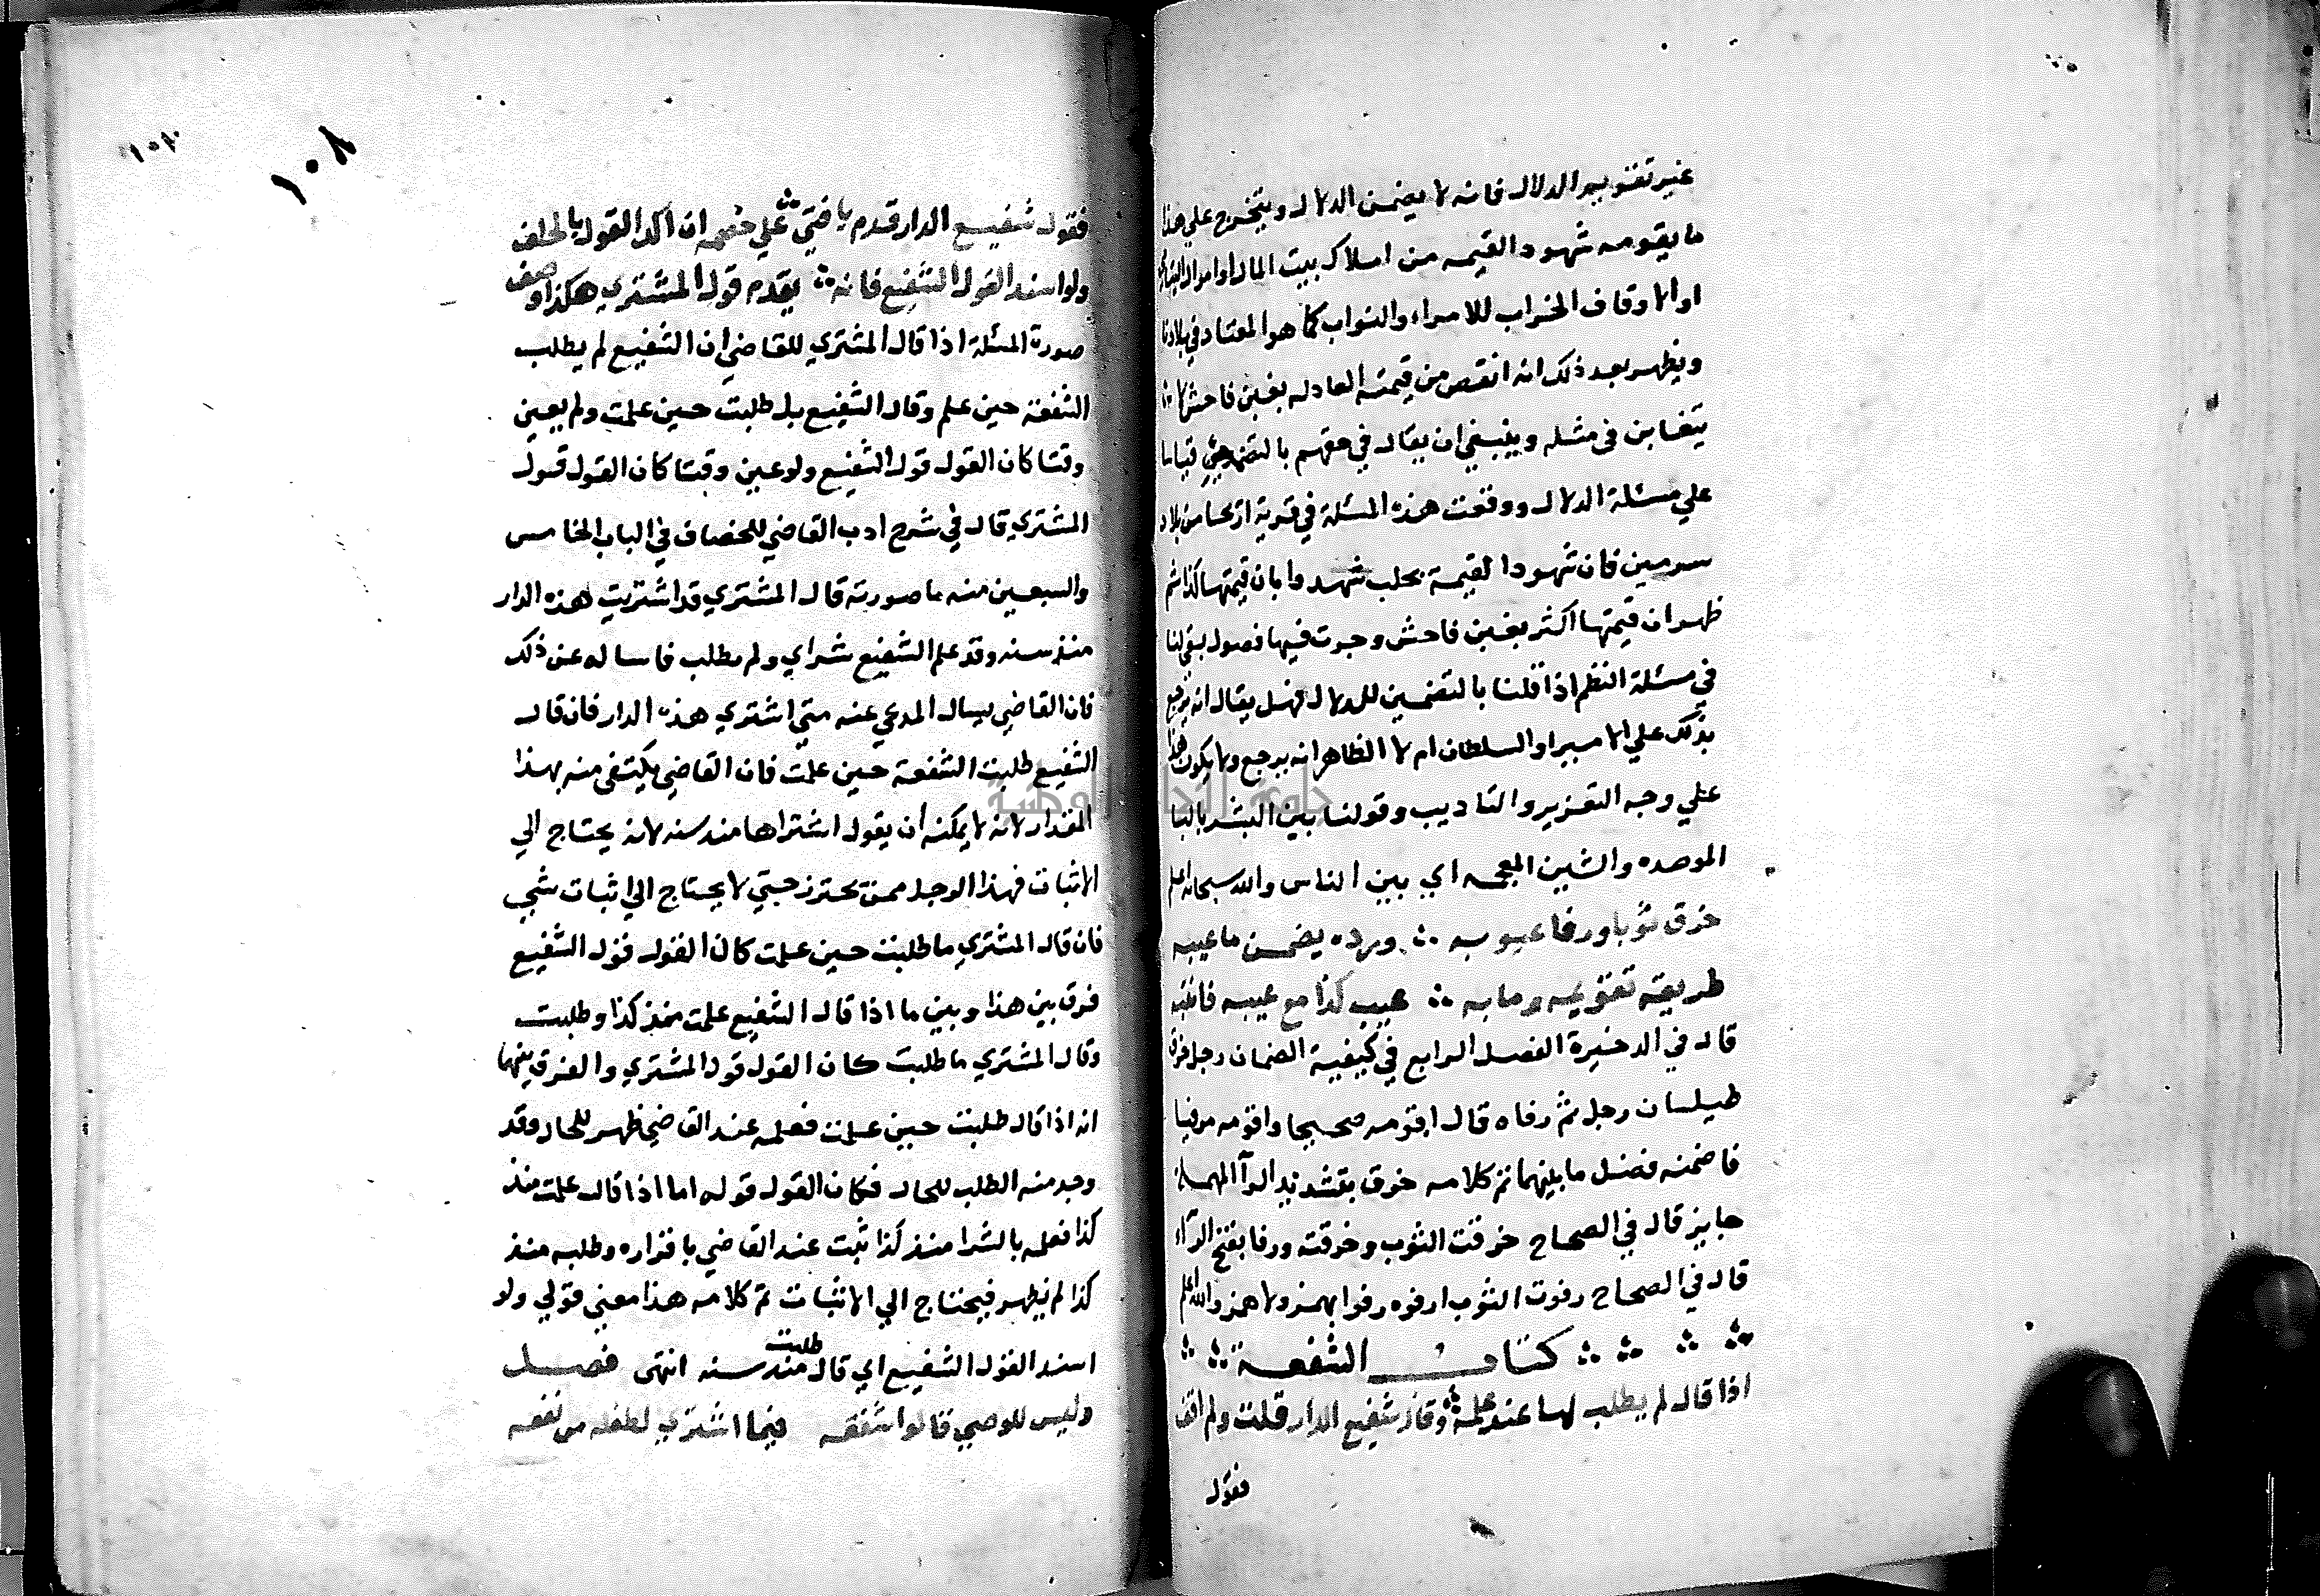 غير تقويم الدلال فانه لا يضمن الدلال ويتخرج علي هذا
ما يقومه شهود القيمه من املاك بيت المال او اموال اليتامي
او الاوقاف الخراب للامراء والنواب كما هو المعتاد في بلادنا
ويظهر بعد ذلك انه انقص من قيمته العادله بغبن فاحش لا
يتغابن في مثله وينبغي ان يقال في حقهم بالتضمين قياسا
علي مسئلة الدلال ووقعت هذه المسئلة في قرية من بلاد
سرمين فان شهود القيمة بحلب شهدوا بان قيمتها كذا ثم
ظهر ان قيمتها اكثر بغبن فاحش وجرت فيها فصول بقي لنا
في مسئلة النظم اذا قلنا بالتضمين للدلال فهل يقال انه يرجع
بذلك علي الامير او السلطان ام لا الظاهر انه يرجع ولا يكون هذا
علي وجه التعزير والتاديب وقولنا بين البشر بالبا
الموحده والشين المعجمه اي بين الناس والله سبحانه اعلم
خرق ثوبا ورفا عيوبه ؞ ورده يضمن ما عيبه
طريقه تقويمه وما به ؞ عيب كذا مع عيبه فانتبه
قال في الدخيرة الفصل الرابع في كيفية الضمان رجل خرق
طيلسان رجل ثم رفاه قال اقومه صحيحا واقومه مرفيا
فاضمنه فضل ما بينهما تم كلامه خرق بتشديد الرآ المهملة
جايز قال في الصحاح خرقت الثوب وخرقته ورفا بفتح الرآ
قال في الصحاح رفوت الثوب ارفوه رفوا يهمز ولا يهمز والله اعلم
؞ ؞ ؞ ؞ كتاب الشفعة ؞ ؞
اذا قال لم يطلب لها عند علمه ؞ وقال شفيع الدار قلت ولم اقف
فقول
١٠٨
١٠٨
فقول شفيع الدار قدم يا فتي ؞ علي خصمه ان اكد القول بالحلف
ولو اسند القول الشفيع فانه ؞ يقدم قول المشتري هكذا وصف
صورة المسئلة اذا قال المشتري للقاضي ان الشفيع لم يطلب
الشفعة حين علم وقال الشفيع بل طلبت حين علمت ولم يعين
وقتا كان القول قول الشفيع ولو عين وقتا كان القول قول
المشتري قال في شرح ادب القاضي للخصاف في الباب الخامس
والسبعين منه ما صورته قال المشتري قد اشتريت هذه الدار
منذ سنه وقد علم الشفيع شراي ولم يطلب فاساله عن ذلك
فان القاضي يسال المدعي عنه متي اشتري هذه الدار فان قال
الشفيع طلبت الشفعة حين علمت فان القاضي يكتفي منه بهذا
المقدار لانه لا يمكنه ان يقول اشتراها منذ سنه لانه يحتاج الي
الاثبات فهذا الوجل ممن تحترز حتي لا يحتاج الي اثبات شي
فان قال المشتري ما طلبت حين علمت كان القول قول الشفيع
فرق بين هذا وبين ما اذا قال الشفيع علمت منذ كذا وطلبت
وقال المشتري ما طلبت كان القول قول المشتري والفرق بينهما
انه اذا قال طلبت حين علمت فعلمه عند القاضي ظهر للحال وقد
وجد منه الطلب للحال فكان القول قوله اما اذا قال علمت منذ
كذا فعلمه بالشرا منذ كذا ثبت عند القاضي باقراره وطلبه منذ
كذا لم يظهر فيحتاج الي الاثبات تم كلامه هذا معني قولي ولو
اسند القول الشفيع اي قال طلبت منذ سنه انتهي فصل
وليس للوصي قالوا شفعه فيما اشتري لطفله من نفعه